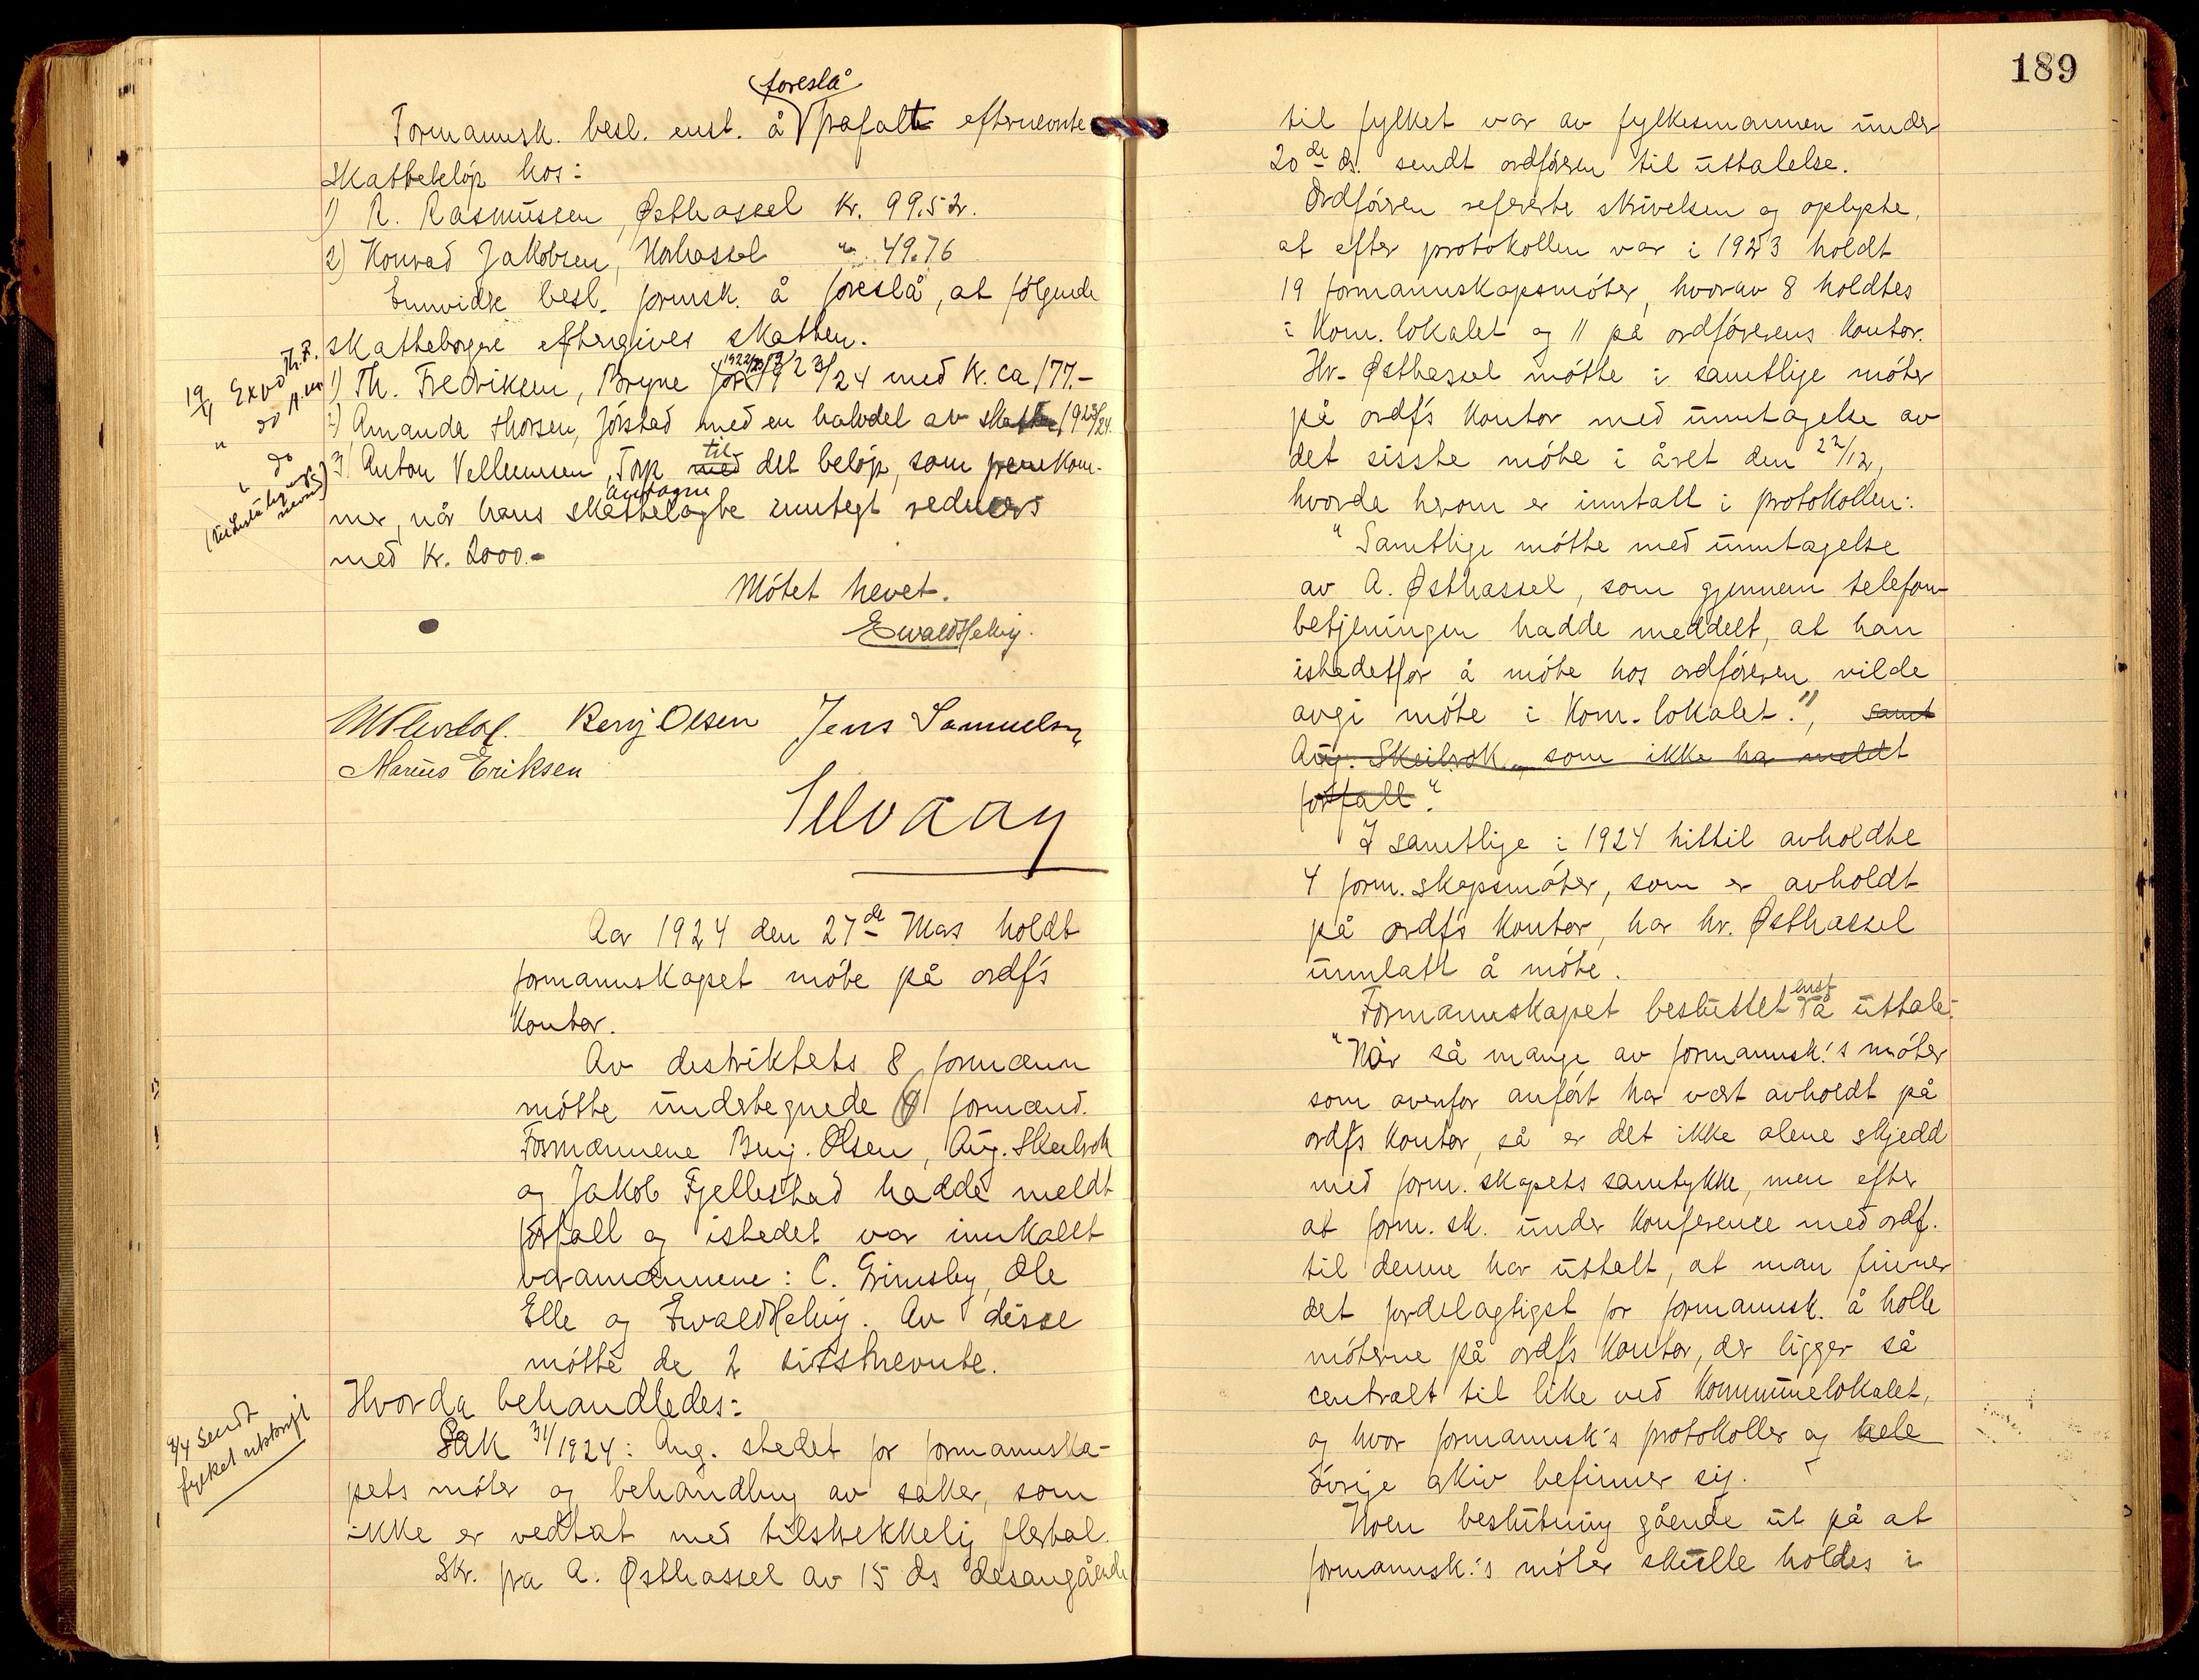 foreslå
Formannsk. besl. enst. å frafalt efternevnte
skattebeløp hos:
1) R. Rasmussen, Østhassel kr. 99.52.
2) Konrad Jakobsen, " 49.76
Ennvidre besl. formsk. å foreslå, at følgende
skatteborgere eftergives skatten.
1) Th. Fredriksen, Bryne for 1923/24 med kr. ca 177.-
2) Amanda Thorsen, Jørstad med en halvdel av skatten 1923/24.
til
3) Anton Vellemsen, Torp med det beløp, som fremkom-
antagne
mer, når hans skattelagte inntegt redusers
med kr. 2000.-
Møtet hevet.
Ewald Helvig.
Benj Olsen Jens Samuelsen
Marius Eriksen
19/4 Exp Th. F.
" do
" do
Aar 1924 den 27de Mars holdt
formannskapet møte på ordf's
kontor.
Av destriktets 8 formænn
møtte undertegnede formænd.
Formænnene Benj. Olsen, Aug. Skeibrok
og Jakob Fjellestad hadde meldt
forfall og istedet var innkallt
varamænnene: C. Grimsby, Ole
Elle og Ewald Helvig. Av disse
møtte de 2 sisstnevnte.
Hvorda behandledes:
9/4 Sendt
fylket utskrift
Sak 31/1924: Ang. stedet for formannska-
pets møter og behandling av saker, som
ikke er vedtat med tilstrekkelig flertal.
Skr. fra A. Østhassel av 15 ds desangående
189
til fylket var av fylkesmannen under
20de ds. sendt ordføren til uttalelse.
Ordføren refererte skrivelsen og oplyste,
at efter protokollen var i 1923 holdt
19 formannskapsmøter, hvorav 8 holdtes
i kom. lokalet og 11 på ordførerens kontor.
Hr. Østhassel møtte i samtlige møter
på ordf's kontor med unntagelse av
det sisste møte i året den 22/12,
hvorde herom er inntatt i protokollen:
"Samtlige møtte med unntagelse
av A. Østhassel, som gjennem telefon-
betjeningen hadde meddelt, at han
istedetfor å møte hos ordføreren vilde
avgi møte i kom. lokalet.", samt
Aug. Skeibrok, som ikke ha meldt
forfall."
I samtlige i 1924 hittil avholdte
4 form.skapsmøter, som er avholdt
på ordf's kontor, har hr. Østhassel
unnlatt å møte.
enst
Formannskapet besluttet å uttale:
"Når så mange av formannsk.'s møter
som ovenfor anført har vært avholdt på
ordf's kontor, så er det ikke alene skjedd
med form.skapets samtykke, men efter
at form.sk. under konference med ordf.
til denne har uttalt, at man finner
det fordelagtigst for formannsk. å holle
møterne på ordf's kontor, der ligger så
centralt til like ved kommunelokalet,
og hvor formannsk's protokoller og hele
øvrige arkiv befinner sig.
Noen beslutning gående ut på at
formannsk.'s møter skulle holdes i